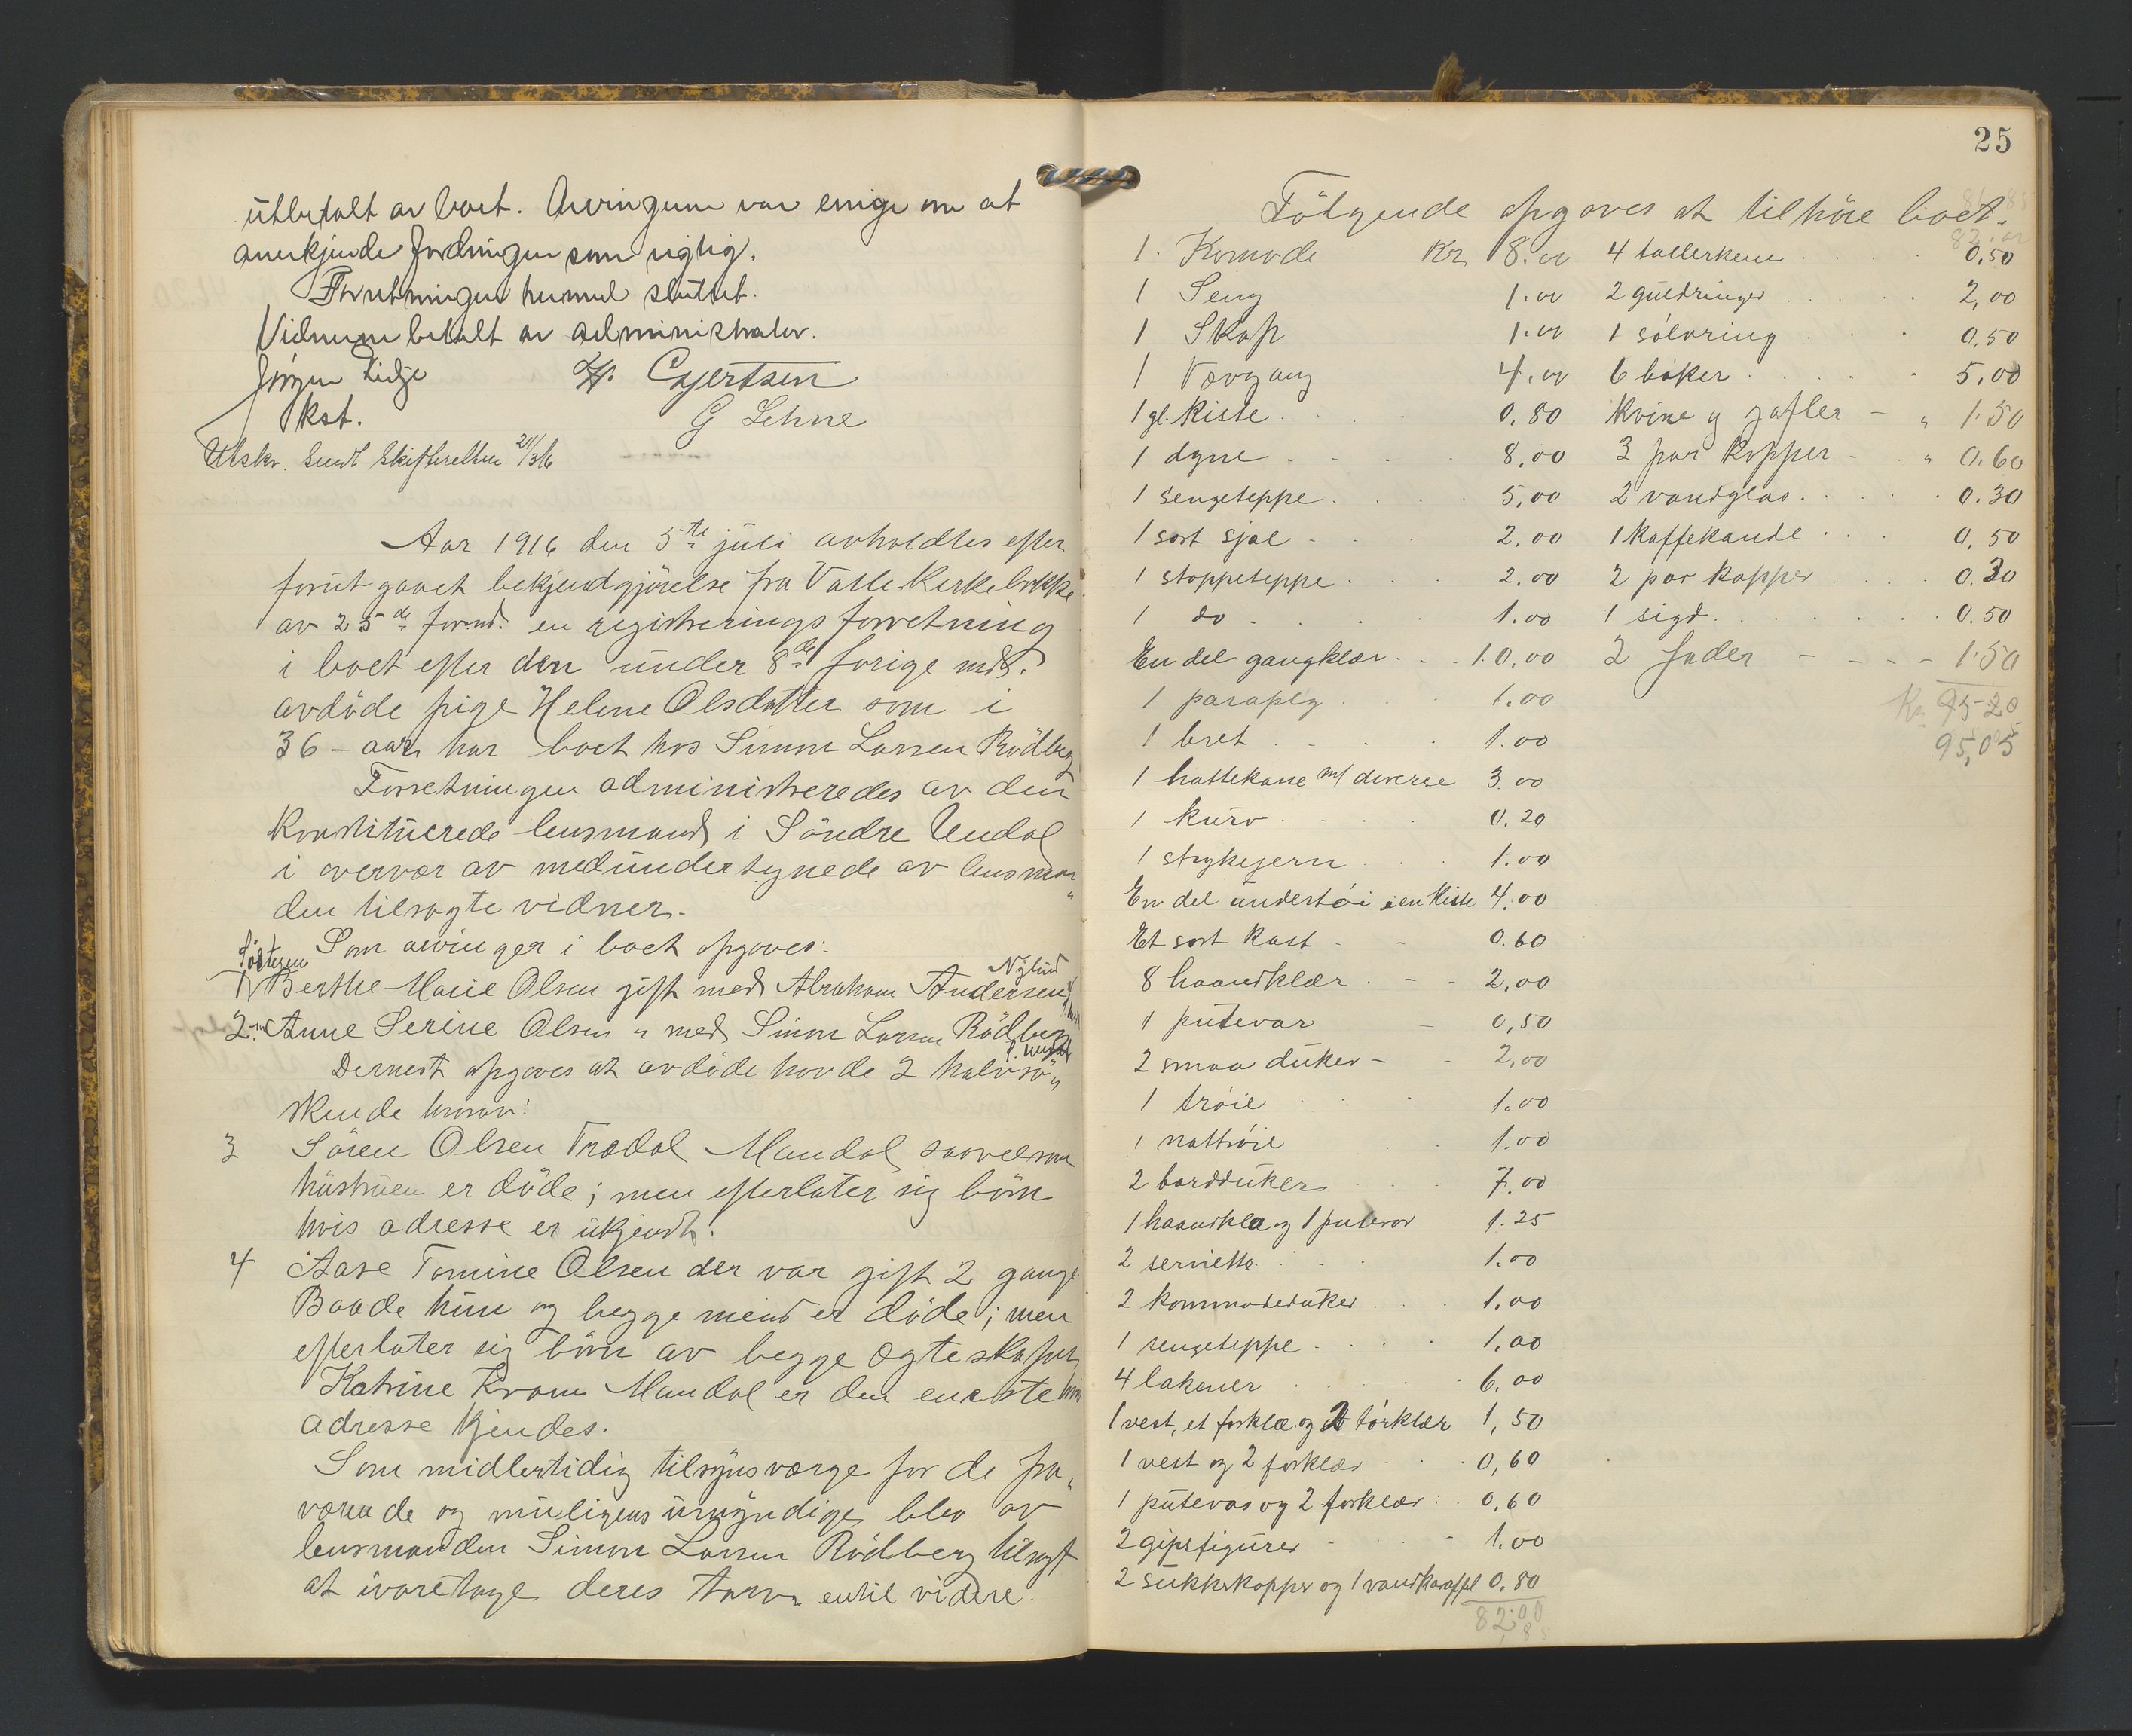 utbetalt av boet. Arvingerne var enige om at
anerkjende fordringen som rigtig.
Forretningen hermed sluttet.
Vidnerne betalt av administrator.
Jörgen H. Gjertsen
kst. G Lehne
Utskr. sendt Skifteretten 21/3 16
Aar 1916 den 5te juli avholdtes efter
forut gaaet bekjendtgjörelse fra Valle Kirkebakke
av 25de f.md. en registreringsforretning
i boet efter den under 8de forige mds.
avdöde pige Helene Olsdatter som i
36 - aar har boet hos Simon Larsen Rödberg
Forretningen administreredes av den
Konstituerede lensmand i Söndre Undal
i overvær av medundertegnede av lensman
den tilsagte vidner.
Som arvinger i boet opgaves:
Söstrene Nylund
1 Berthe-Marie Olsen gift med Abraham Andersen
2. Anne Serine Olsen " med Simon Larsen Rödberg
Dernest opgaves at avdöde havde 2 halvsö"
skende hvorav:
3 Sören Olsen Trædal Mandal saavelsom
hustruen er döde; men efterlater sig börn
hvis adresse er ukjendt.
4 Aase Tomine Olsen der var gift 2 gange
Baade hun og begge mend er döde; men
efterlater sig börn av begge ægteskaper
Katrine Kvam Mandal er den eneste hvis
adresse kjendes.
Som midlertidig tilsynsværge for de fra"
værende og muligens umyndige blev av
lensmanden Simon Larsen Rödberg tilsagt
at ivaretage deres tarv entil videre.
25
Fölgende opgaves at tilhöre boet.
1. Komode Kr 8.00 4 tallerkener 0,50
1 Seng 1.00 2 guldringer 2,00
1 Skap 1.00 1 sölvring 0,50
1 Vævgang 4.00 6 böker 5.00
1 gl. Kiste 0.80 Knive og gafler - " 1.50
1 dyne 8.00 3 par Kopper - " 0.60
1 sengeteppe 5,00 2 vandglas 0.30
1 sort sjal 2.00 1 Kaffekande 0,50
1 stoppeteppe 2.00 2 par kopper 0.30
1 do 1.00 1 sigd 0.50
En del gangklær 10,00 2 fader 1.50
1 paraply 1.00 Kr 95.20
1 bret 1.00 95,05
1 hattekasse m/ diverse 3.00
1 kurv 0.20
1 strykejern 1.00
En del undertöi i en kiste 4.00
Et sort kast 0.60
8 haandklær 2,00
1 putevar 0,50
2 smaa duker 2,00
1 tröie 1.00
1 nattröie 1.00
2 bordduker 7.00
1 haandklæ og 1 putevar 1.25
2 servietter 1.00
2 kommodeduker 1.00
1 sengeteppe 1.00
4 lakener 6,00
1 vest, et forklæ og 2 törklær 1,50
1 vest og 2 forklær 0,60
1 putevar og 2 forklær 0,60
2 gipsfigurer 1.00
2 sukkerkopper og 1 vandkaraffel 0.80
82.00